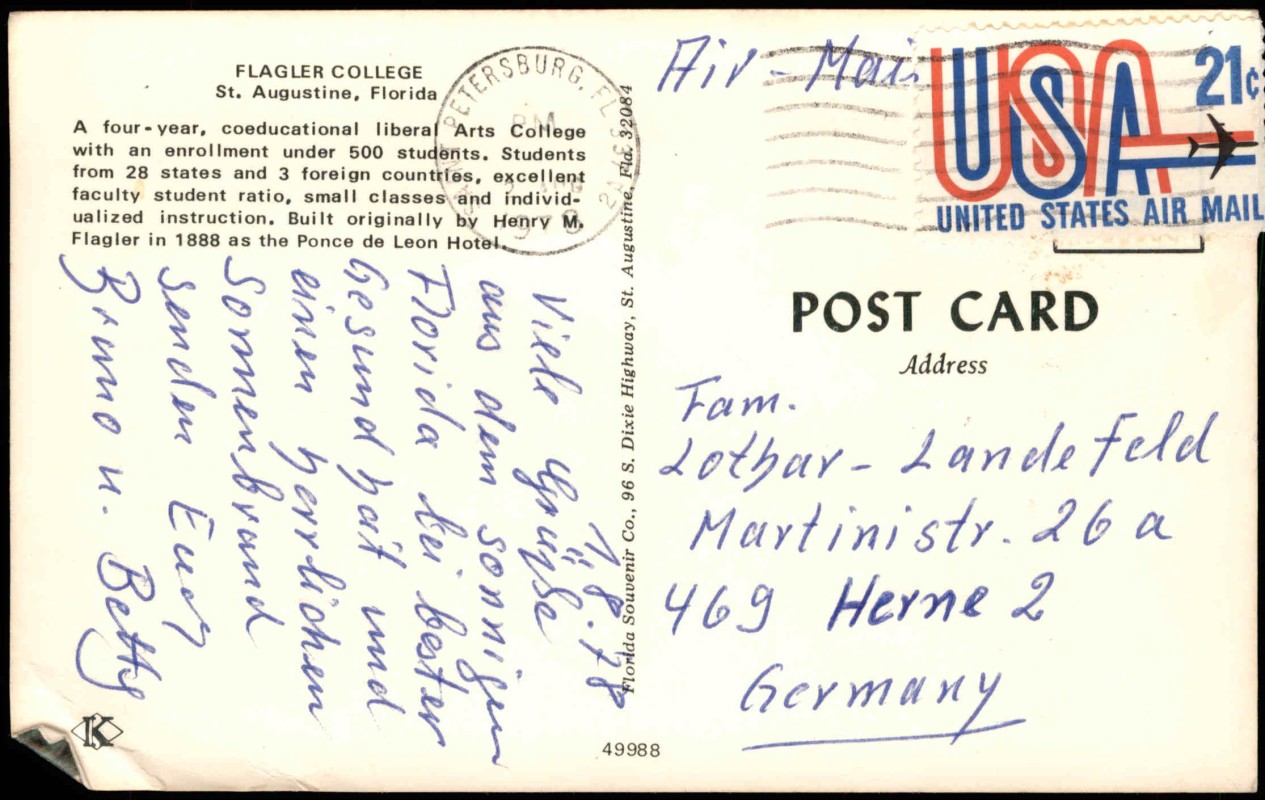 FLAGLER COLLEGE
St. Augustine, Florida
A four-year, coeducational liberal Arts College
with an enrollment under 500 students. Students
from 28 states and 3 foreign countries, excellent
faculty student ratio, small classes and individ-
ualized instruction. Built originally by Henry M.
Flagler in 1888 as the Ponce de Leon Hotel.
PETERSBURG, FL
PM
1978
1.8.78
Viele Grüße
aus dem sonnigen
Florida bei bester
Gesundheit und
einen herrlichen
Sonnenbrand
senden Euch
Bruno u. Betty
K
Florida Souvenir Co., 96 S. Dixie Highway, St. Augustine, Fla. 32084
49988
Air-Mail
USA
21c
UNITED STATES AIR MAIL
POST CARD
Address
Fam.
Lothar - Landefeld
Martinistr. 26 a
469 Herne 2
Germany